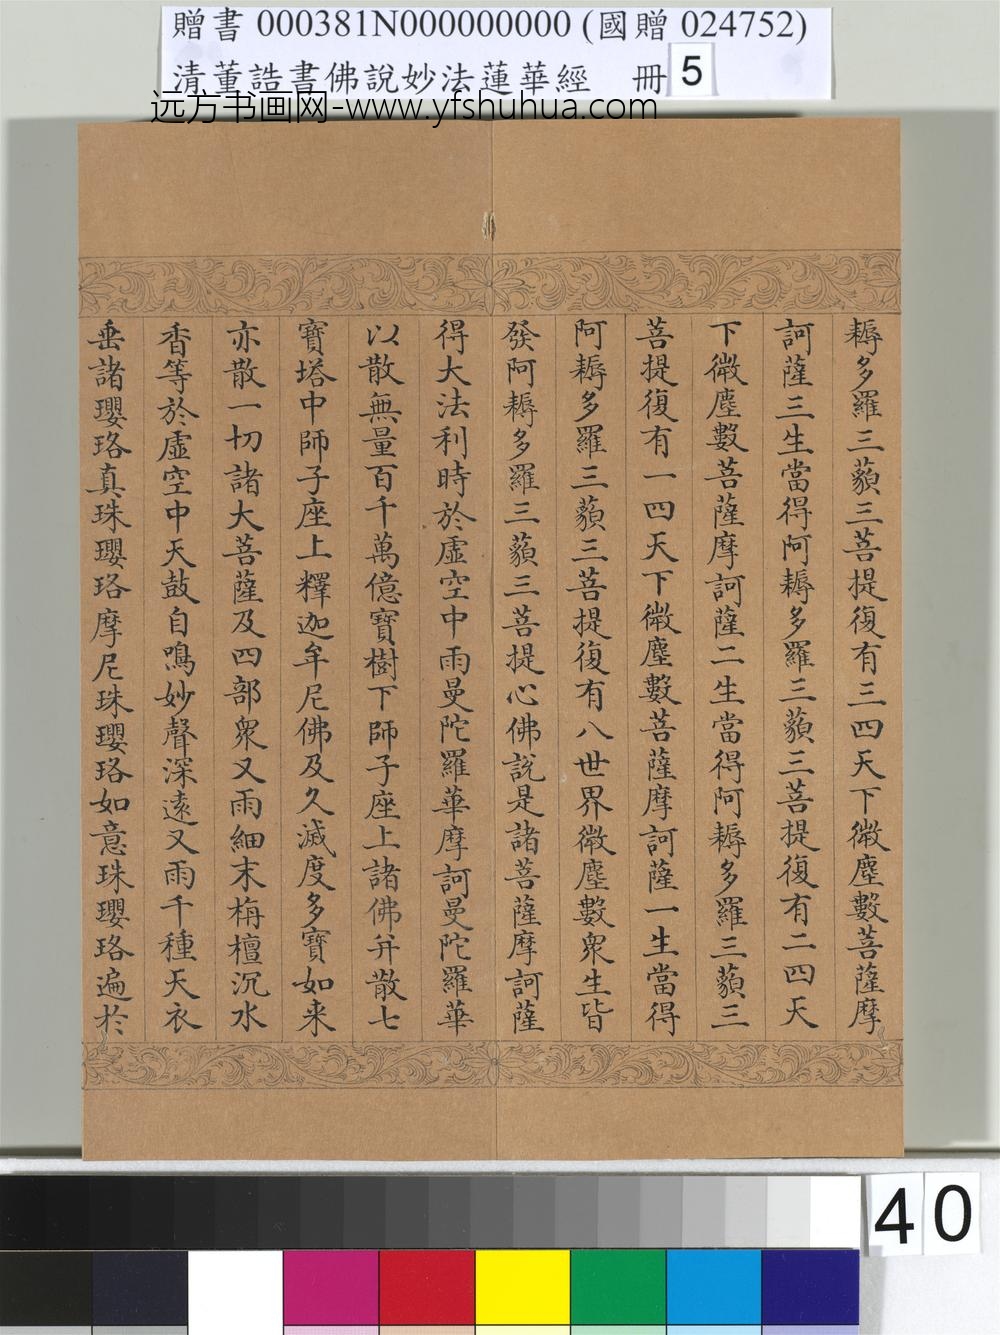 贈書 000381N000000000 (國贈 024752)
清董誥書佛說妙法蓮華經 冊 5
远方书画网-www.yfshuhua.com
耨多羅三藐三菩提復有三四天下微塵數菩薩摩
訶薩三生當得阿耨多羅三藐三菩提復有二四天
下微塵數菩薩摩訶薩二生當得阿耨多羅三藐三
菩提復有一四天下微塵數菩薩摩訶薩一生當得
阿耨多羅三藐三菩提復有八世界微塵數衆生皆
發阿耨多羅三藐三菩提心佛說是諸菩薩摩訶薩
得大法利時於虛空中雨曼陀羅華摩訶曼陀羅華
以散無量百千萬億寶樹下師子座上諸佛并散七
寶塔中師子座上釋迦牟尼佛及久滅度多寶如来
亦散一切諸大菩薩及四部衆又雨細末栴檀沉水
香等於虛空中天鼓自鳴妙聲深遠又雨千種天衣
垂諸瓔珞真珠瓔珞摩尼珠瓔珞如意珠瓔珞遍於
40